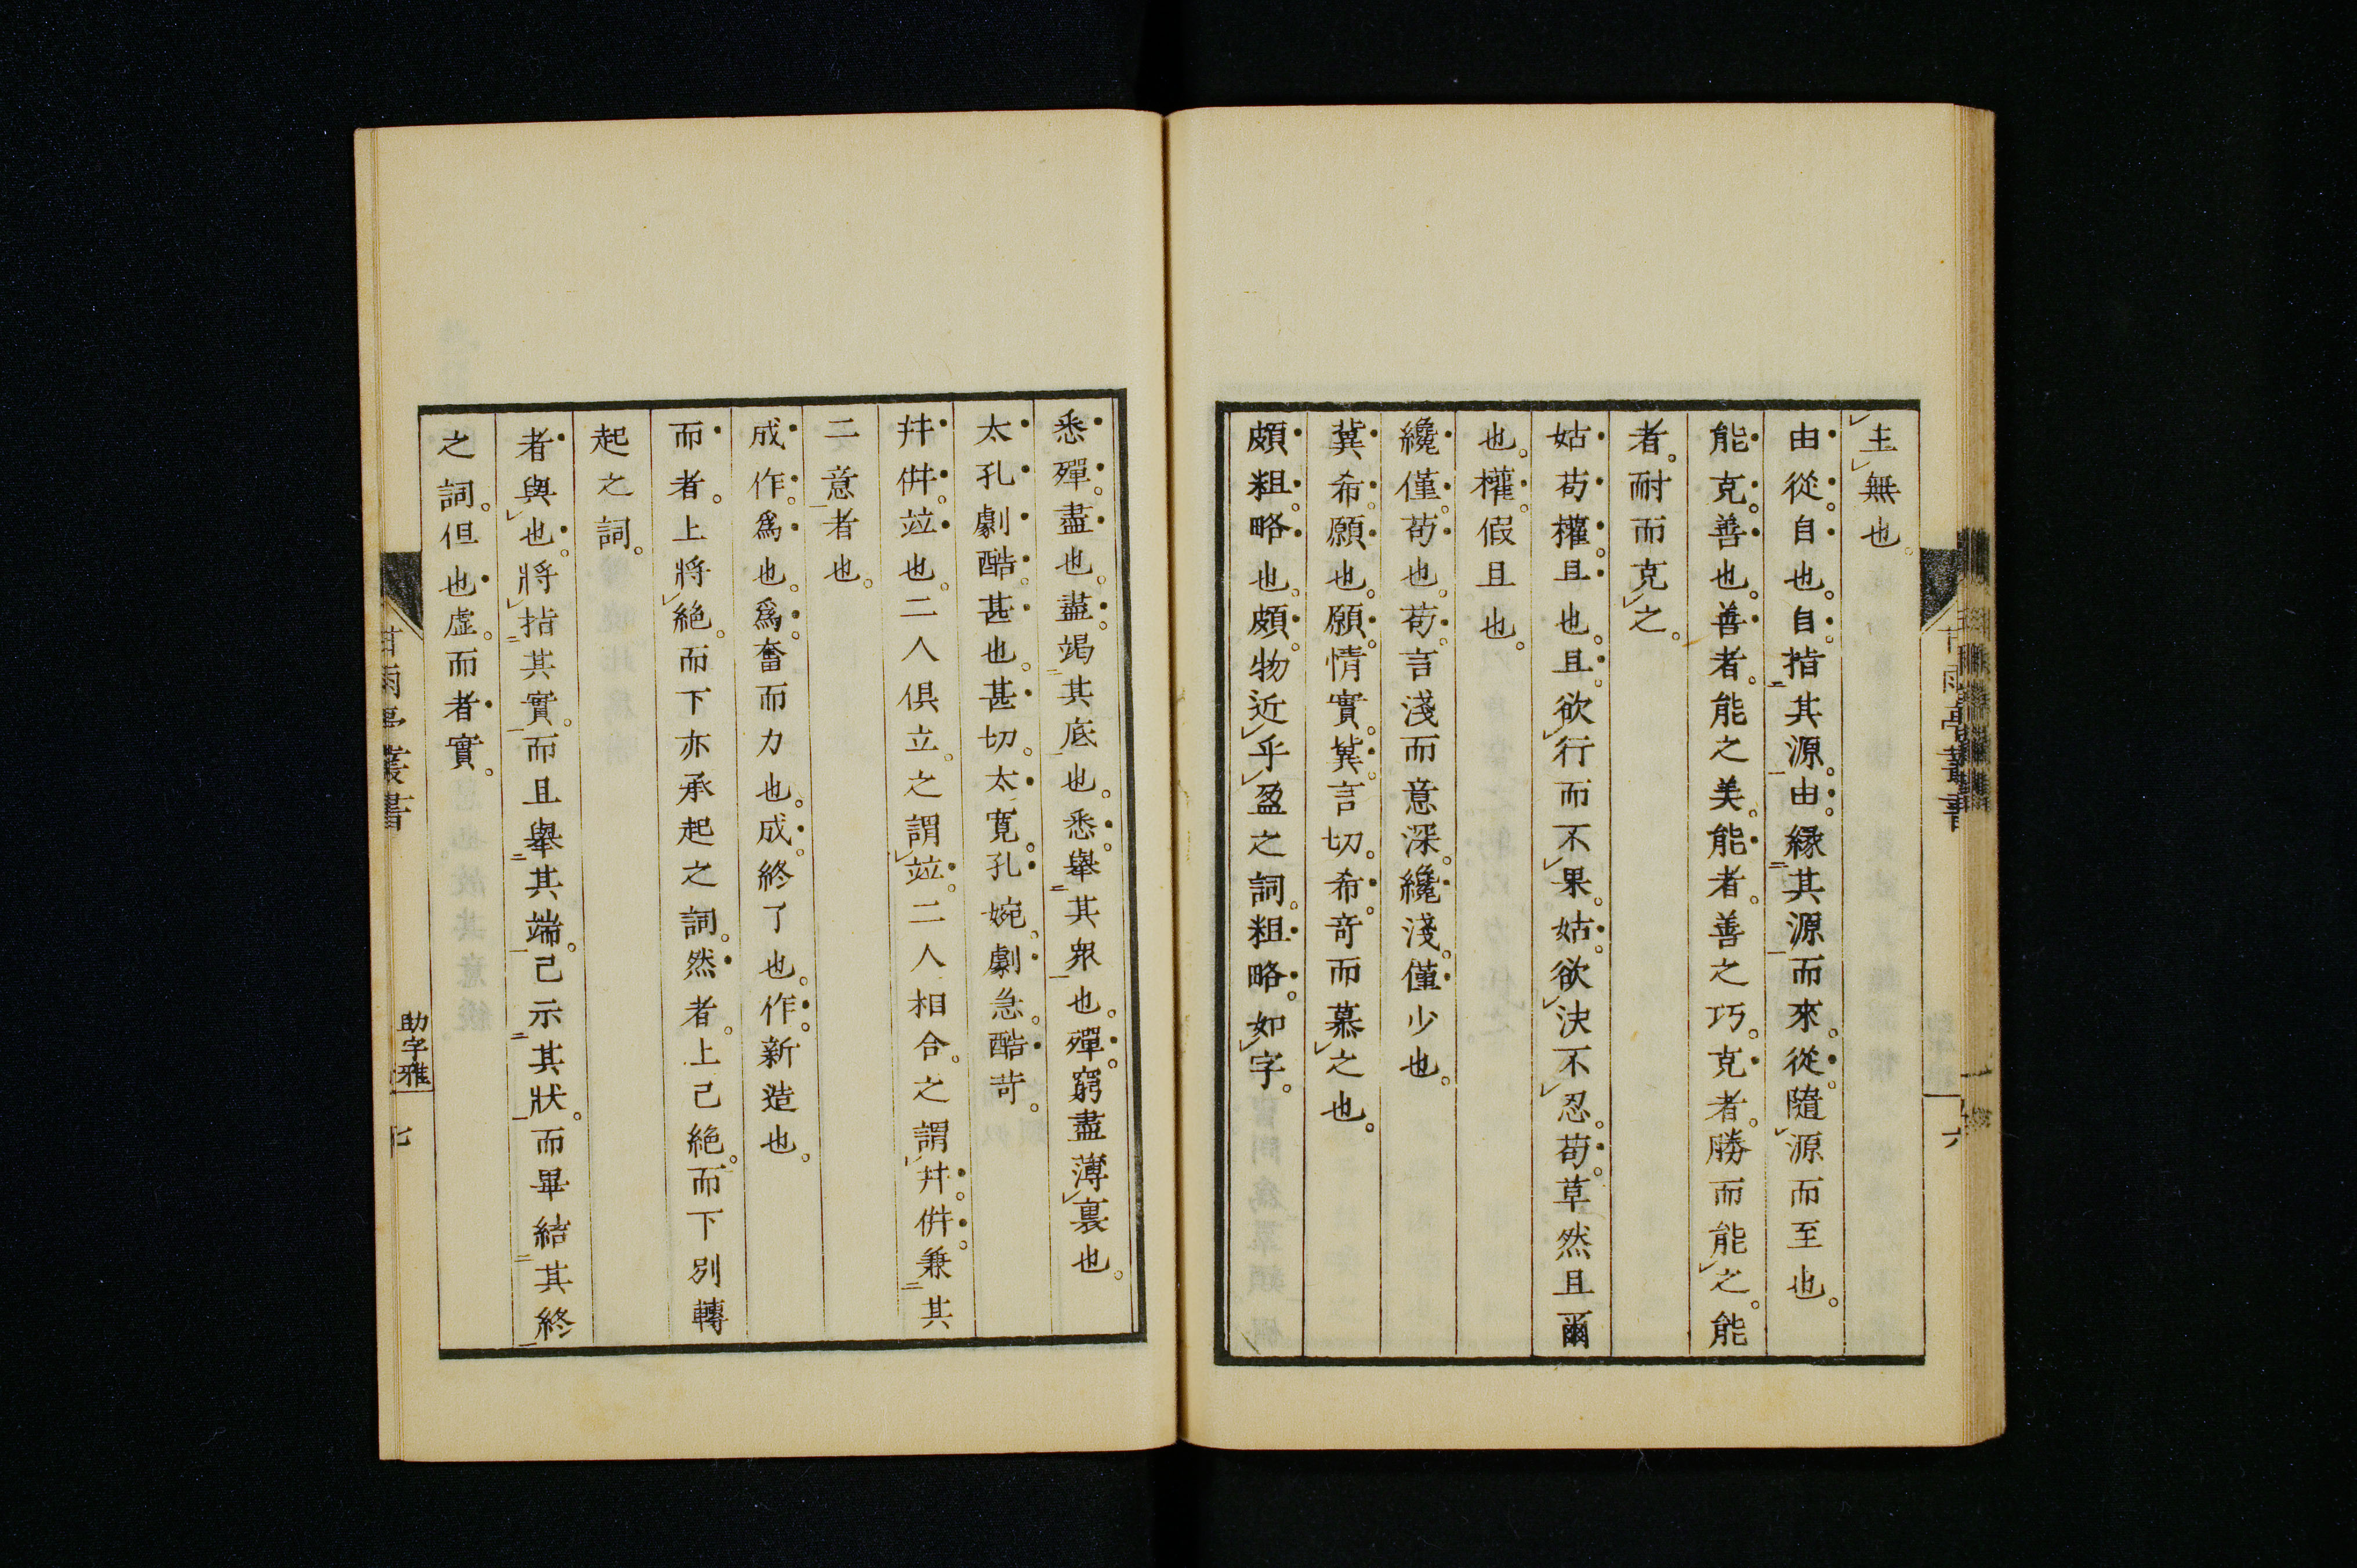 主無也。
由從。自也。自。指其源。由。緣其源而來。從。隨源而至也。
能克。善也。善者。能之美。能者。善之巧。克者。勝而能之。能
者。耐而克之。
姑苟權。且也。且。欲行而不果。姑。欲決不忍。苟。草然且爾
也。權。假且也。
纔僅。苟也。苟。言淺而意深。纔淺。僅少也。
冀希。願也。願。情實。冀。言切。希。奇而慕之也。
頗粗。略也。頗。物近乎盈之詞。粗略。如字。
悉殫。盡也。盡。竭其底也。悉。舉其眾也。殫。窮盡薄裏也。
太孔劇酷。甚也。甚切。太寬。孔婉。劇急。酷苛。
幷倂。竝也。二人俱立。之謂竝。二人相合。之謂幷。倂。兼其
二意者也。
成作。爲也。爲。奮而力也。成。終了也。作。新造也。
而者。上將絕。而下亦承起之詞。然者。上已絕。而下別轉
起之詞。
者與也。將指其實。而且舉其端。已示其狀。而畢結其終
之詞。但也虛。而者實。
甘雨亭叢書
六
助字雅
七